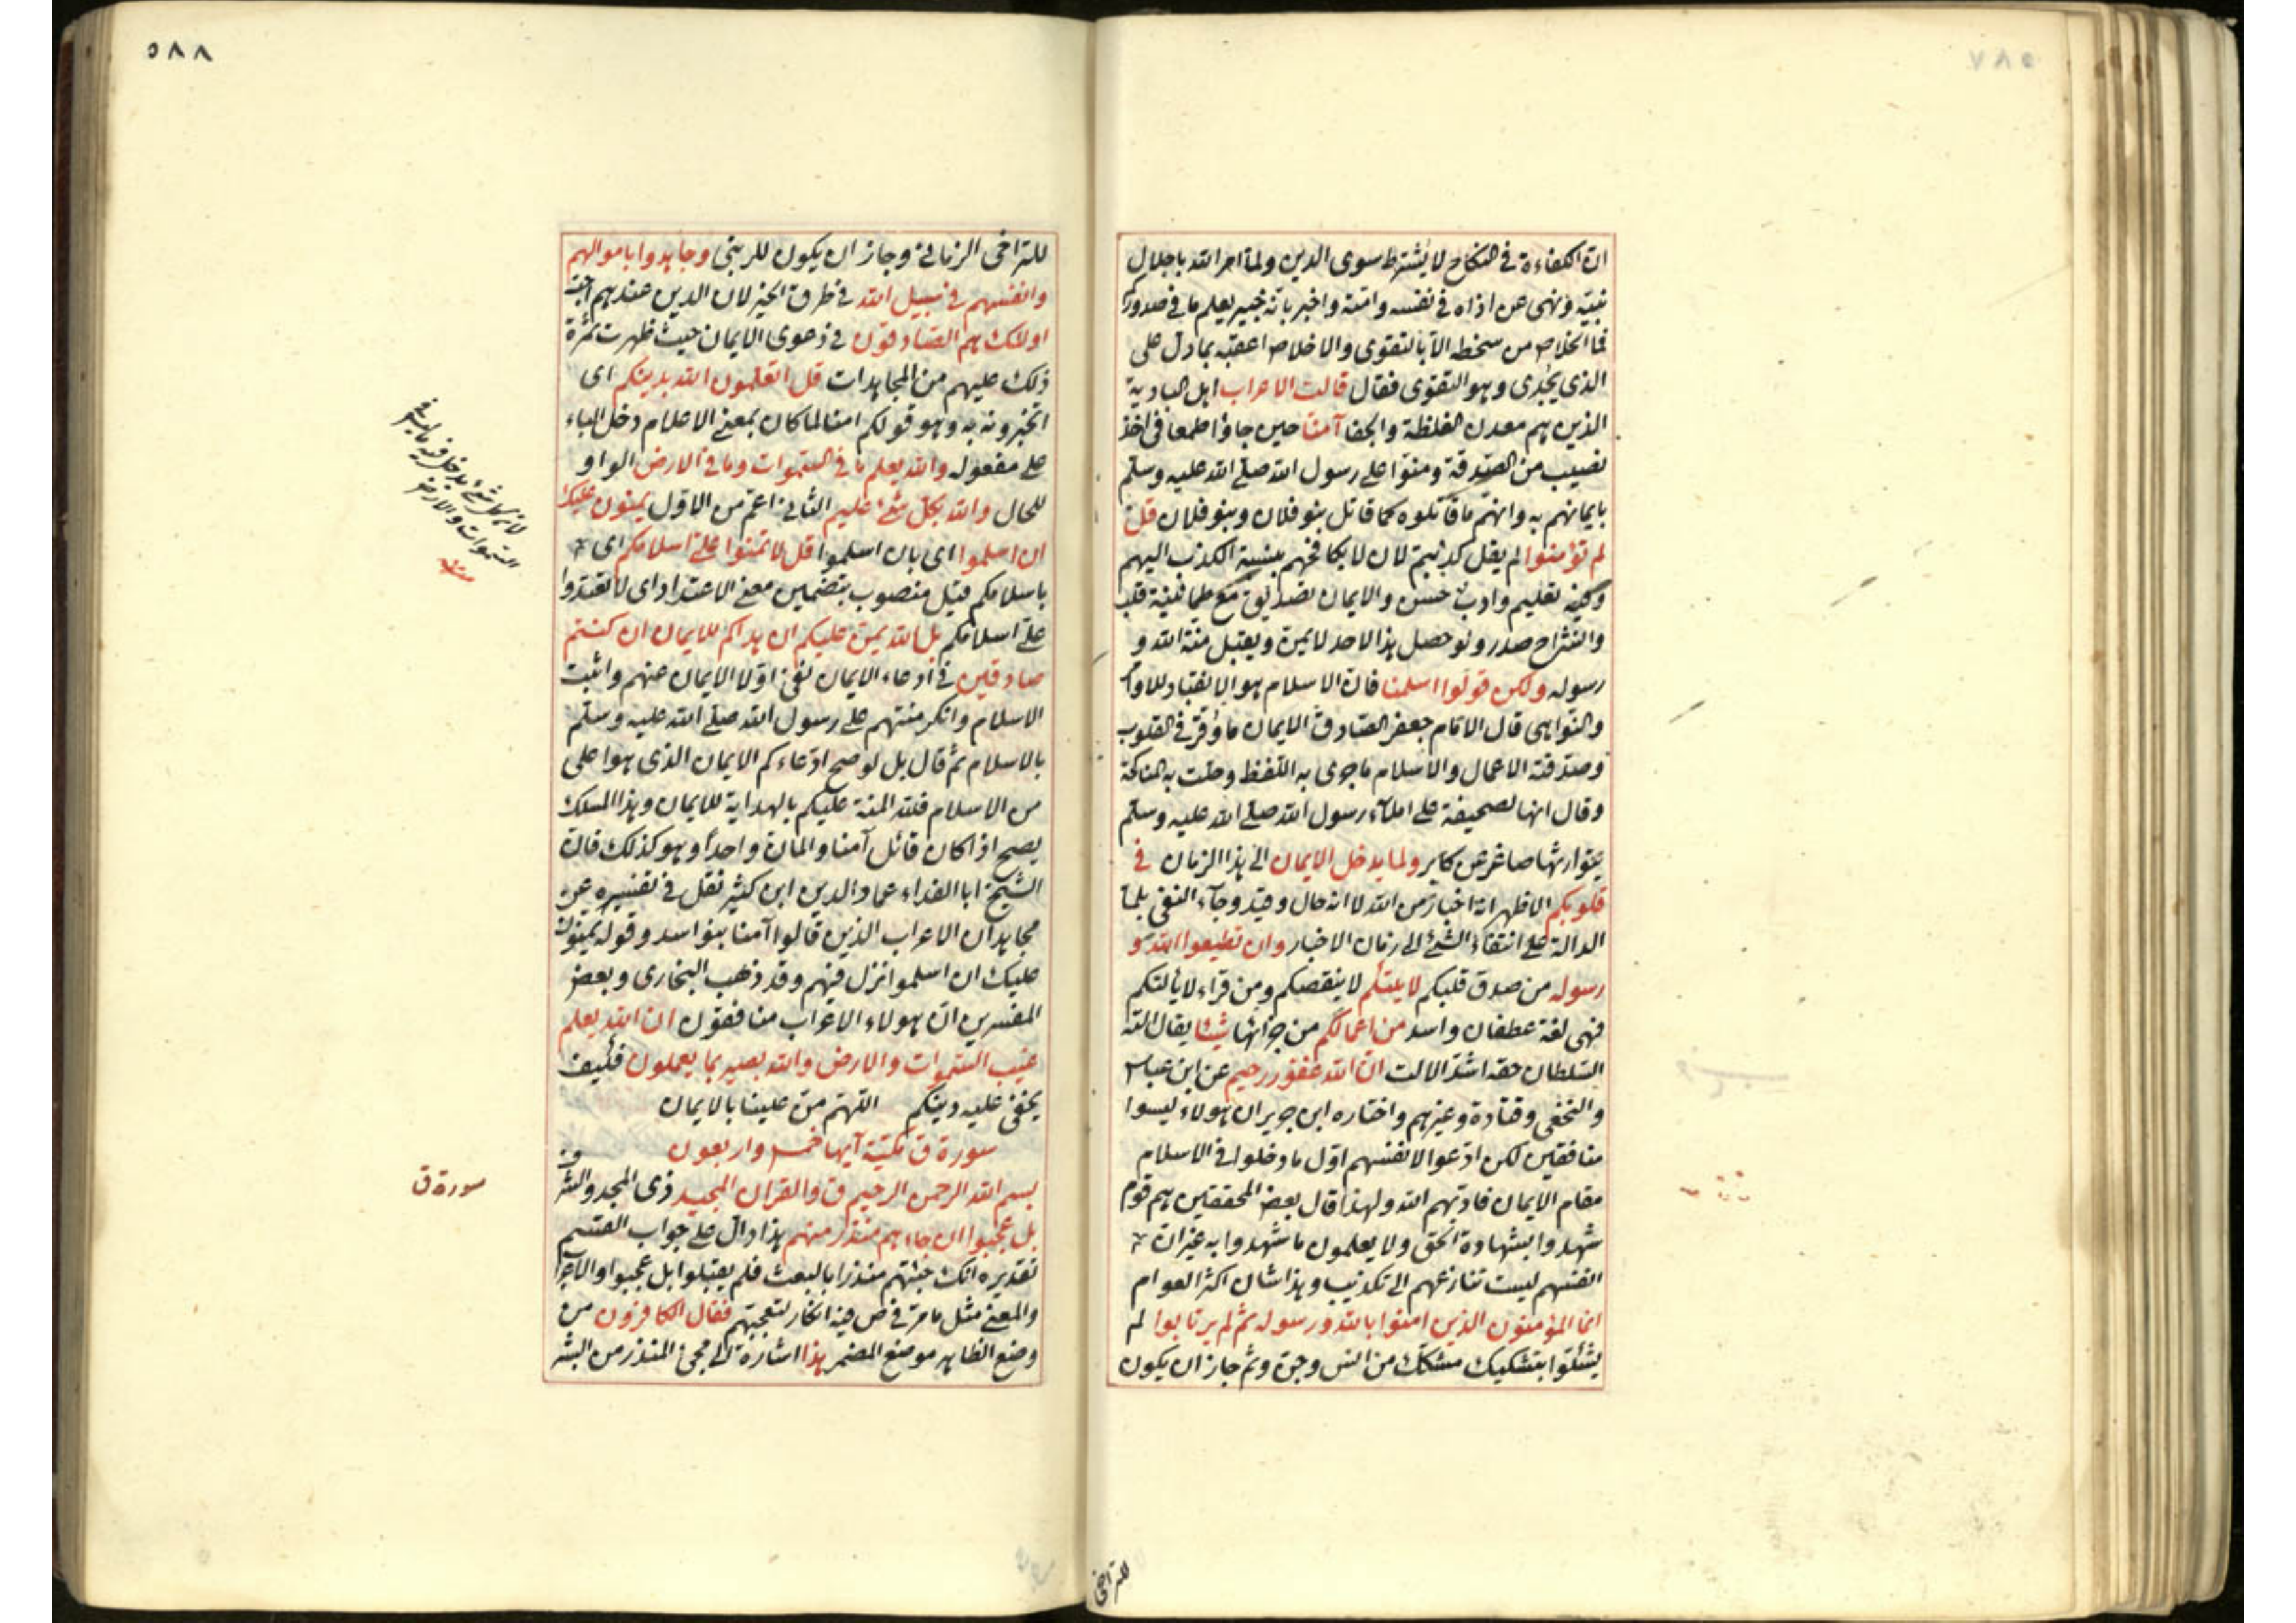 ان الكفاءة فى النكاح لا يشترط سوى الدين ولما امر الله باجلال
نبيه ونهى عن اذاه فى نفسه وامته واخبر بانه خبير يعلم ما فى صدورك
فما الخلاص من سخطه الا بالتقوى والاخلاص اعقبه بما دل على
الذى يجدى وهو التقوى فقال قالت الاعراب اهل البادية
الذين هم معدن الغلظة والجفا آمنا حين جاؤا طمعا فى اخذ
نصيب من الصدقة ومنوا على رسول الله صلى الله عليه وسلم
بايمانهم به وانهم ما قاتلوه كما قاتل بنو فلان وبنو فلان قل
لم تؤمنوا لم يقل كذبتم لان لا يكافحهم بنسبة الكذب اليهم
وفيه تعليم وادب حسن والايمان تصديق مع طمانينة قلب
وانشراح صدر ولو حصل هذا لاحد لا يمن ويقبل منة الله و
رسوله ولكن قولوا اسلمنا فان الاسلام هو الانقياد للاوا
والنواهى قال الامام جعفر الصادق الايمان ما وقر فى القلوب
وصدقته الاعمال والاسلام ما جرى به اللفظ وحلت به المناكحة
وقال انها لصحيفة على املاء رسول الله صلى الله عليه وسلم
يتوارثها صاغر عن كابر ولما يدخل الايمان الى هذا الزمان فى
قلوبكم الاظهر انه اخبار من الله لا انه حال وقيد وجاء النفى بلما
الدالة على انتفاء الشئ الى زمان الاخبار وان تطيعوا الله و
رسوله من صدق قلبكم لا يلتكم لا ينقصكم ومن قراء لا يألتكم
فهى لغة عطفان واسد من اعمالكم من جزائها شيئا يقال الته
السلطان حقه اشد الالت ان الله غفور رحيم عن ابن عباس
والنخعى وقتادة وغيرهم واختاره ابن جرير ان هولاء ليسوا
منافقين لكن ادعوا لانفسهم اول ما دخلوا فى الاسلام
مقام الايمان فادبهم الله ولهذا قال بعض المحققين هم قوم
شهدوا بشهادة الحق ولا يعلمون ما شهدوا به غير ان
انفسهم ليست تنازعهم الى تكذيب وهذا شان اكثر العوام
انما المؤمنون الذين امنوا بالله ورسوله ثم لم يرتابوا لم
يشكوا بتشكيك مشكك من انس وجن وثم جاز ان يكون
للتراخى
٥٨٨
للتراخى الزمانى وجاز ان يكون للرتبى وجاهدوا باموالهم
وانفسهم فى سبيل الله فى طرق الخير لان الدين عندهم احب
اولئك هم الصادقون فى دعوى الايمان حيث ظهرت ثمرة
ذلك عليهم من المجاهدات قل اتعلمون الله بدينكم اى
اتخبرونه به وهو قولكم امنا لما كان بمعنى الاعلام دخل الباء
على مفعوله والله يعلم ما فى السموات وما فى الارض الواو
للحال والله بكل شئ عليم الثانى اعم من الاول يمنون عليك
ان اسلموا اى بان اسلموا قل لا تمنوا على اسلامكم اى
باسلامكم قيل منصوب بتضمين معنى الاعتداد اى لا تعتدوا
على اسلامكم بل الله يمن عليكم ان هداكم للايمان ان كنتم
صادقين فى ادعاء الايمان نفى اولا الايمان عنهم واثبت
الاسلام وانكر منتهم على رسول الله صلى الله عليه وسلم
بالاسلام ثم قال بل لو صح ادعاءكم الايمان الذى هو اعلى
من الاسلام فلله المنة عليكم بالهداية للايمان وهذا المسلك
يصح اذا كان قائل آمنا والمان واحدا وهو كذلك فان
الشيخ ابا الفداء عماد الدين ابن كثير نقل فى تفسيره عن
مجاهد ان الاعراب الذين قالوا آمنا بنو اسد وقوله يمنون
عليك ان اسلموا نزل فيهم وقد ذهب البخارى وبعض
المفسرين ان هولاء الاعراب منافقون ان الله يعلم
غيب السموات والارض والله بصير بما يعملون فكيف
يخفى عليه دينكم اللهم من علينا بالايمان
سورة ق مكية آيها خمس واربعون
بسم الله الرحمن الرحيم ق والقران المجيد ذى المجد والشرف
بل عجبوا ان جاءهم منذر منهم هذا دال على جواب القسم
تقديره انك جئتهم منذرا بالبعث فلم يقبلوا بل عجبوا
والمعنى مثل ما مر فى ص فيه انكار لتعجبهم فقال الكافرون من
وضع الظاهر موضع المضمر هذا اشارة الى مجئ المنذر من البشر
السموات والارض
سورة ق